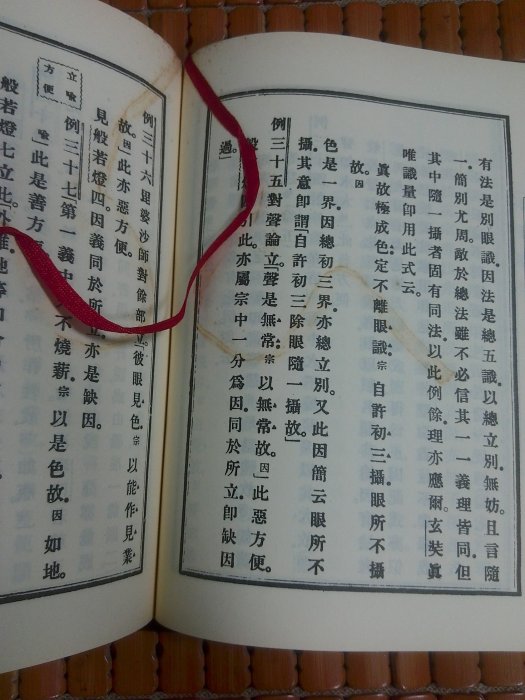 有法是別眼識。因法是總五識。以總立別。無妨。且言隨
一。簡別尤周。敵於總法雖不必信其一一義理皆同。但
其中隨一攝者固有同法。以此例餘理亦應爾。玄奘眞
唯識量即用此式云。
眞故極成色定不離眼識。宗 自許初三攝眼所不攝
故。因
色是一界。因總初三界。亦總立別。又此因簡云眼所不
攝。其意即謂「自許初三除眼隨一攝故」
例三十五對聲論立「聲是無常。宗 以無常故。因」此惡方便。
此亦屬宗中一分爲因。同於所立。即缺因
過。」
例三十六毘婆沙師對餘部立。「彼眼見色。宗 以能作見業
故。因」此亦惡方便。
見般若燈四。因義同於所立。亦是缺因。
立喩方便
例三十七「第一義中 不燒薪。宗 以是色故。因 如地。
喩」此是善方
般若燈七立此。